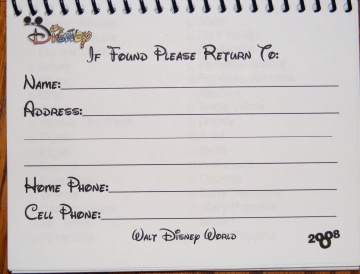 Disney
If Found Please Return To:
Name:
Address:
Home Phone:
Cell Phone:
Walt Disney World
2008